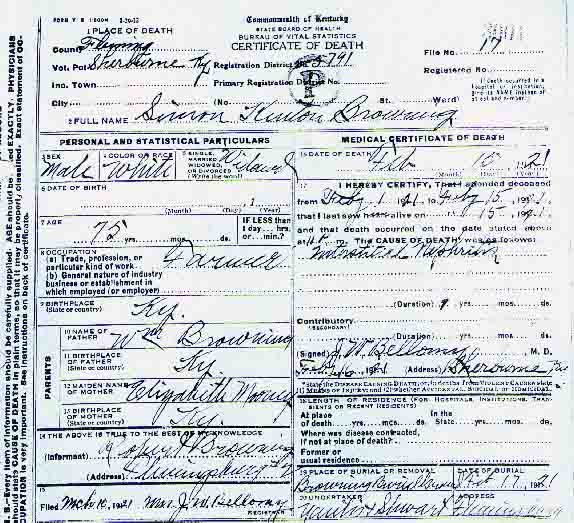 FORM V. S. 1-20-12
Commonwealth of Kentucky
STATE BOARD OF HEALTH
BUREAU OF VITAL STATISTICS
CERTIFICATE OF DEATH
1 PLACE OF DEATH
County Fleming
Vot. Pct Sherburne Ky
Inc. Town
City
Registration District No. 5791
Primary Registration District No.
(No. St. Ward)
File No. 17
Registered No.
(If death occurred in a
hospital or institution,
give its NAME instead
of street and number.
2 FULL NAME Simon Browning
PERSONAL AND STATISTICAL PARTICULARS
3 SEX
Male
4 COLOR OR RACE
White
5 SINGLE,
MARRIED
WIDOWED,
OR DIVORCED
(Write the word)
Widowed
6 DATE OF BIRTH
(Month) (Day) (Year)
7 AGE
75 yrs. mos. ds.
IF LESS than
1 day... hrs.
or... min.?
8 OCCUPATION
(a) Trade, profession, or
particular kind of work
Farmer
(b) General nature of industry
business or establishment in
which employed (or employer)
9 BIRTHPLACE
(State or country)
Ky.
PARENTS
10 NAME OF
FATHER
Wm Browning
11 BIRTHPLACE
OF FATHER
(State or country)
Ky.
12 MAIDEN NAME
OF MOTHER
Elizabeth
13 BIRTHPLACE
OF MOTHER
(State or country)
Ky.
14 THE ABOVE IS TRUE TO THE BEST OF MY KNOWLEDGE
(Informant) Robert Browning
(Address) Flemingsburg Ky
15
Filed Mch 10, 1921 Mrs. J. W. Bellomy
REGISTRAR
MEDICAL CERTIFICATE OF DEATH
16 DATE OF DEATH
Feb 15 1921
(Month) (Day) (Year)
17 I HEREBY CERTIFY, That I attended deceased
from Feby 1 1921 to Feby 15, 1921
that I last saw alive on 15, 1921
and that death occurred on the date stated above
at m. The CAUSE OF DEATH was as follows:
Interstitial Nephritis
(Duration) yrs. mos. ds.
Contributory
(SECONDARY)
(Duration) yrs. mos. ds.
(Signed) J. W. Bellomy M. D.
192 (Address) Sherburne
*State the DISEASE CAUSING DEATH, or, in deaths from VIOLENT CAUSES state
(1) MEANS OF INJURY; and (2) whether ACCIDENTAL, SUICIDAL or HOMICIDAL.
18 LENGTH OF RESIDENCE (FOR HOSPITALS, INSTITUTIONS, TRANSIENTS OR RECENT RESIDENTS)
At place
of death yrs. mos. ds.
In the
State yrs. mos. ds.
Where was disease contracted,
if not at place of death?
Former or
usual residence
19 PLACE OF BURIAL OR REMOVAL
Browning
DATE OF BURIAL
Feb 17, 1921
20 UNDERTAKER
Stewart
ADDRESS
Flemingsburg